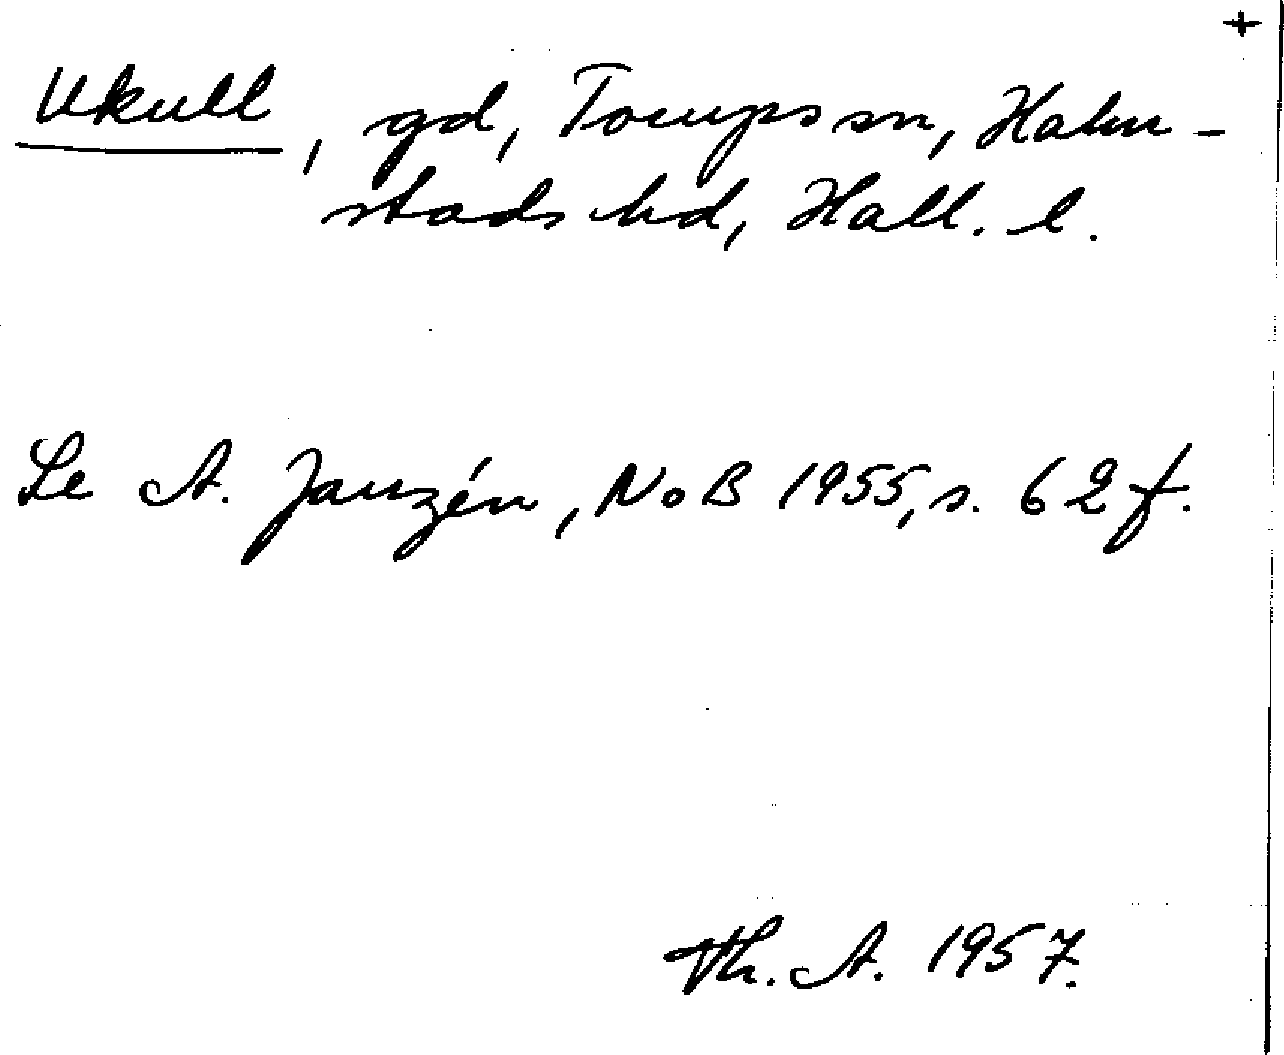 +
Ukull, gd, Torups sn, Halm-
stads hd, Hall. l.
Se A. Janzén, NoB 1955, s. 62 f.
Th. A. 1957.